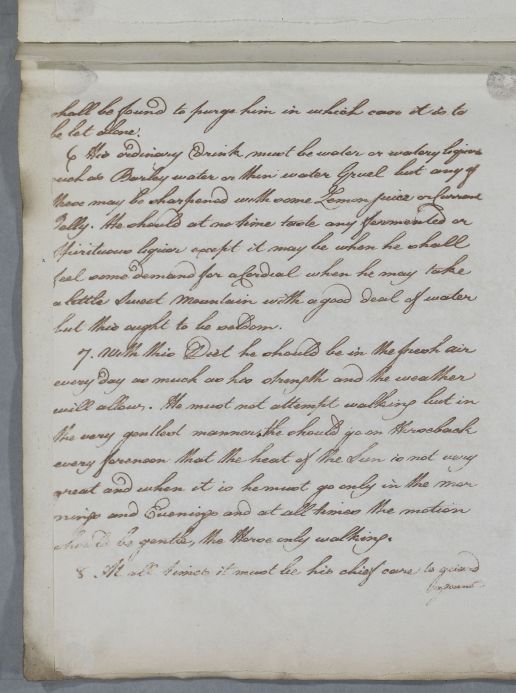 shall be found to purge him in which case it is to
be let alone.
6 His ordinary Drink must be water or watery liquors
such as Barley water or thin water Gruel but any of
these may be sharpened with some Lemon juice or Currant
Jelly. He should at no time taste any fermented or
Spirituous liquor except it may be when he shall
feel some demand for a Cordial when he may take
a little Sweet Mountain with a good deal of water
but this ought to be seldom.
7. With this Diet he should be in the fresh air
every day as much as his strength and the weather
will allow. He must not attempt walking but in
the very gentlest manner, he should go on Horseback
every forenoon that the heat of the Sun is not very
great and when it is he must go only in the mor
nings and Evenings and at all times the motion
should be gentle, the Horse only walking.
8. At all times it must be his chief care to guard